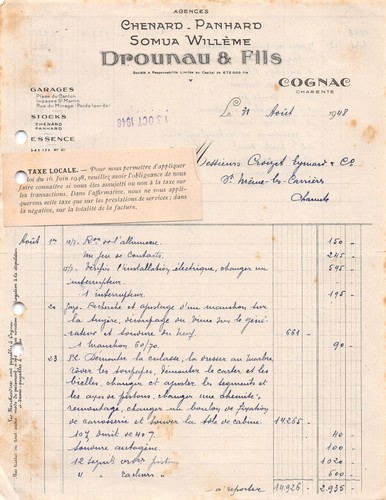 AGENCES
CHENARD - PANHARD
SOMUA WILLÈME
DROUNAU & FILS
Société à Responsabilité Limitée au Capital de 675.000 frs
COGNAC
CHARENTE
GARAGES
Place du Canton
Impasse St Martin
Rue du Minage (Poids lourds)
STOCKS
CHENARD
PANHARD
ESSENCE
HUILES
13 OCT 1948
Le 31 Août 1948
Messieurs Croizet Eymard & Co
St Même-les-Carrières
Charente
TAXE LOCALE. — Pour nous permettre d'appliquer
loi du 16 Juin 1948, veuillez avoir l'obligeance de nous
faire connaître si vous êtes assujetti ou non à la taxe sur
transactions. Dans l'affirmative, nous ne vous appli-
querons cette taxe que sur les prestations de services; dans
la négative, sur la totalité de la facture.
Août 10 de l'allumeur 150 -
Un jeu de contacts. 245 -
Vérifié l'installation électrique, changer un 595 -
interrupteur.
1 interrupteur. 195 -
20 Recherche et ajustage d'un manchon sur
la tuyère, décrassage du géné-
rateur et soudure du 661 -
1 manchon 60/70. 90 -
23 Démonter la culasse, la dresser au marbre
roder les soupapes, démonter le carter et les
bielles, changer et ajuster les segments et
les axes de pistons, changer une chemise,
remontage, changer un boulon de fixation
de carrosserie et souder la tôle de cabine. 14.265 -
40 -
Soudure autogène. 100 -
12 segments piston 1020 -
" " racleurs 500 -
à reporter 14.926 - 2.935 -